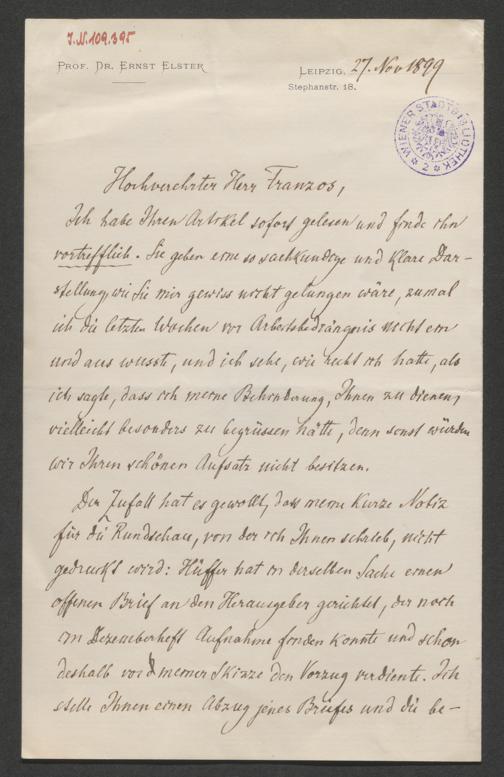 J.N. 109.395
PROF. DR. ERNST ELSTER
LEIPZIG, 27. Nov 1899
Stephanstr. 18.
WIENER STADTBIBLIOTHEK
Hochverehrter Herr Franzos,
Ich habe Ihren Artikel sofort gelesen und finde ihn
vortrefflich. Sie geben eine so sachkundige und klare Dar-
stellung, wie Sie mir gewiss nicht gelungen wäre, zumal
ich die letzten Wochen vor Arbeitsbedrängnis nicht ein
und aus wusste, und ich sehe, wie recht ich hatte, als
ich sagte, dass ich meine Behinderung, Ihnen zu dienen,
vielleicht besonders zu begrüssen hätte, denn sonst würden
wir Ihren schönen Aufsatz nicht besitzen.
Der Zufall hat es gewollt, dass meine kurze Notiz
für die Rundschau, von der ich Ihnen schrieb, nicht
gedruckt wird: Hüffer hat in derselben Sache einen
offenen Brief an den Herausgeber gerichtet, der noch
im Dezemberheft Aufnahme finden konnte und schon
deshalb vor meiner Skizze den Vorzug verdiente. Ich
stelle Ihnen einen Abzug jenes Briefes und die be-